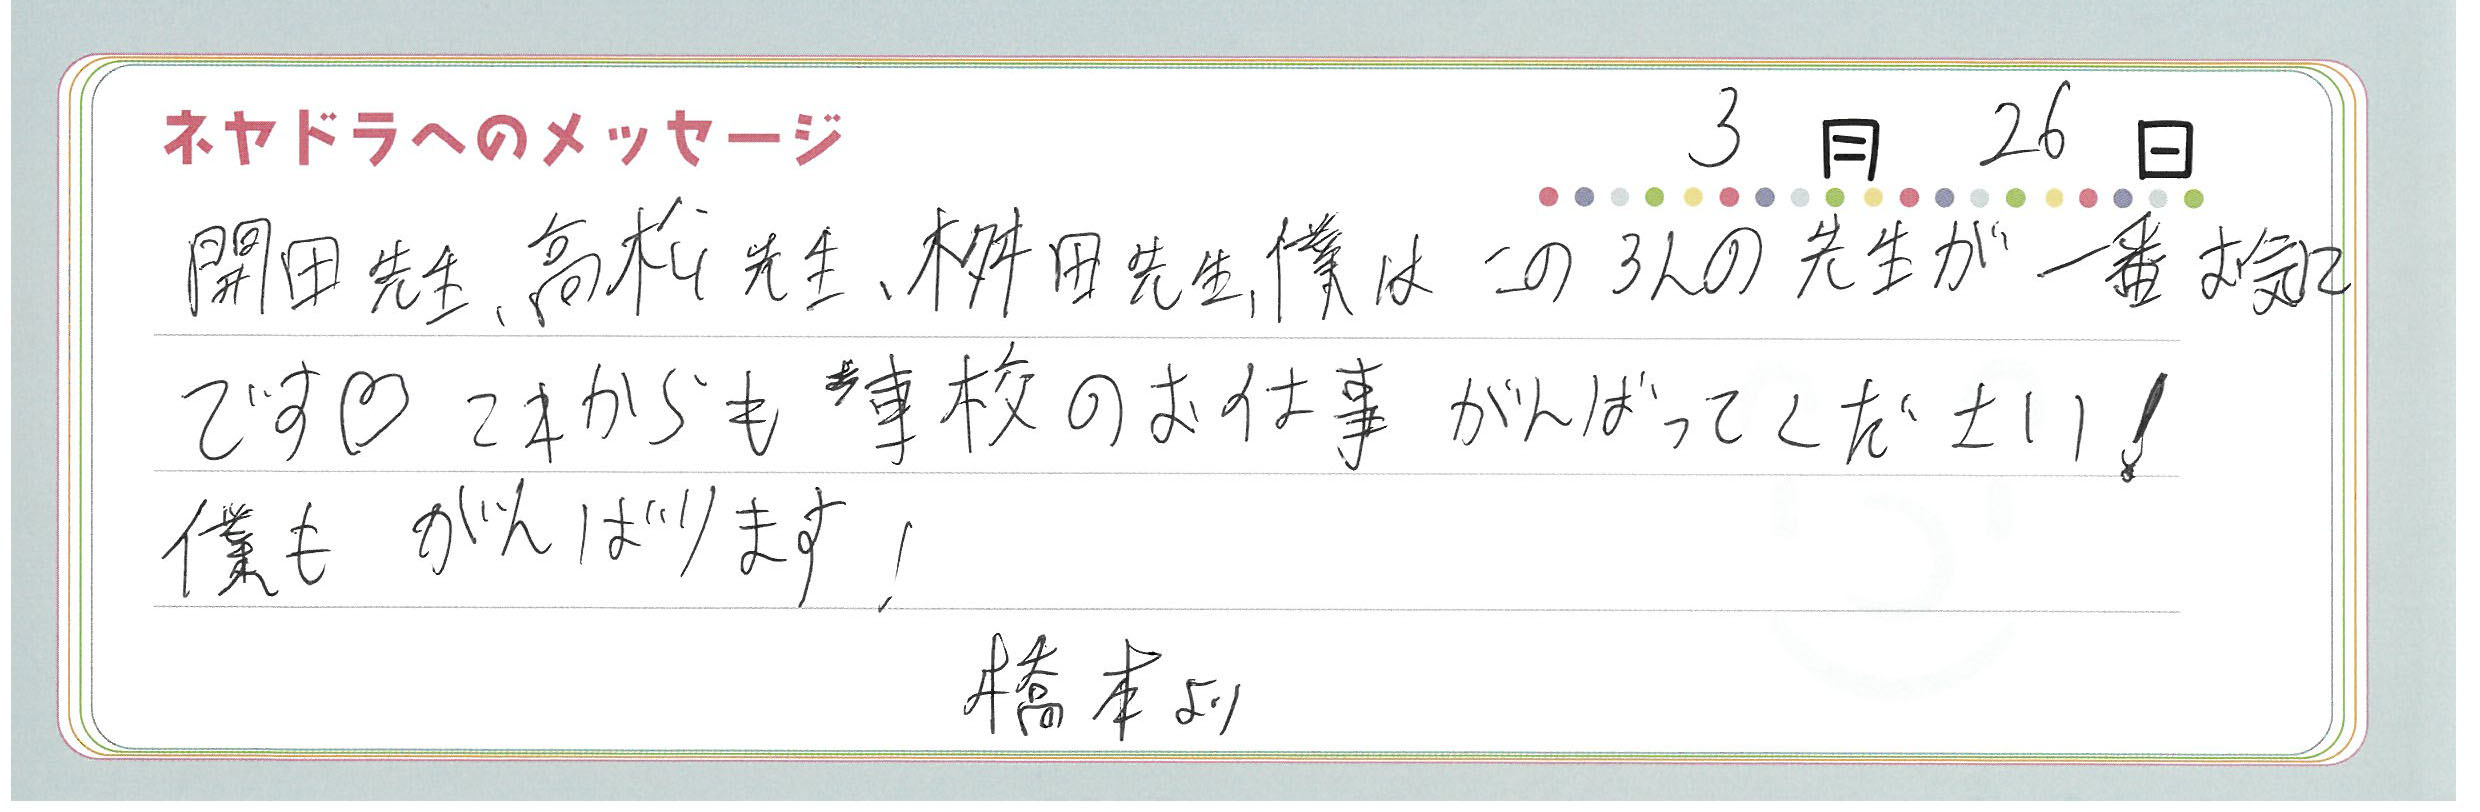 ネヤドラへのメッセージ 3月26日
開田先生、高松先生、桝田先生、僕はこの3人の先生が一番お気に
です♡ これからも車校のお仕事がんばってください!
僕もがんばります!
橋本より